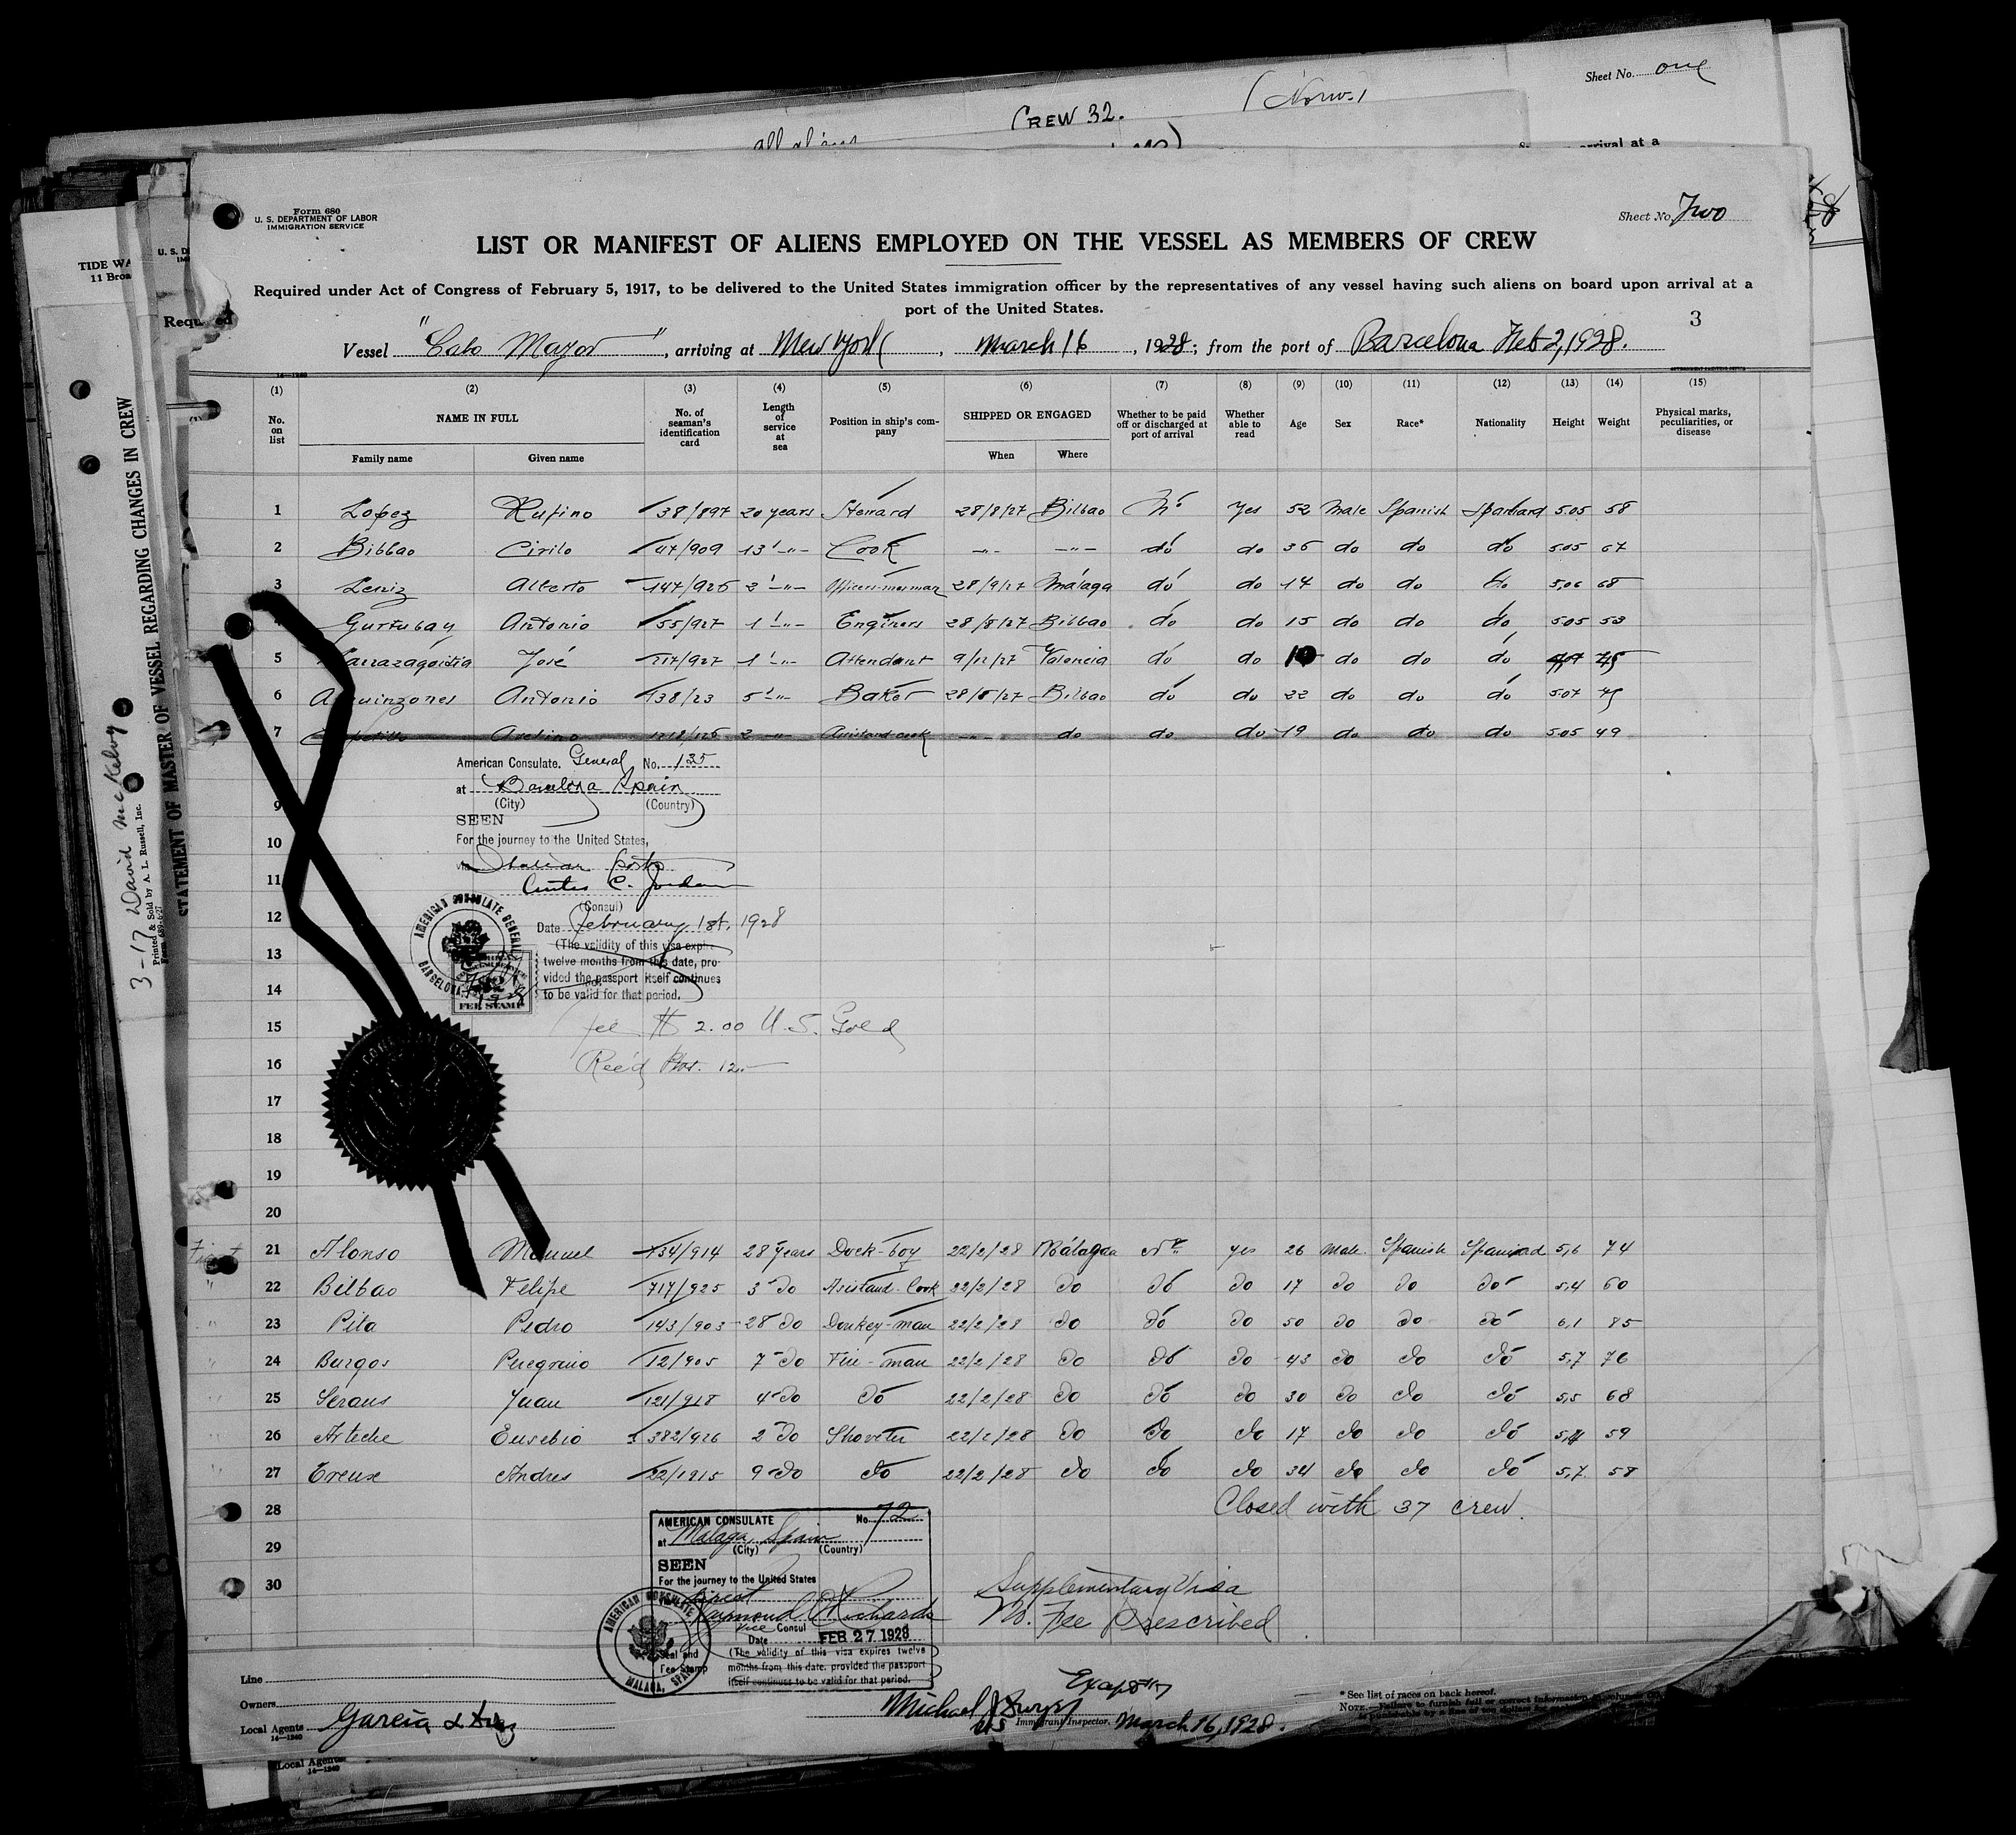 Sheet No. one
(Norw.)
CREW 32.
all aliens
arrival at a
Form 680
U. S. DEPARTMENT OF LABOR
IMMIGRATION SERVICE
Sheet No. Two
LIST OR MANIFEST OF ALIENS EMPLOYED ON THE VESSEL AS MEMBERS OF CREW
Required under Act of Congress of February 5, 1917, to be delivered to the United States immigration officer by the representatives of any vessel having such aliens on board upon arrival at a
port of the United States.
3
Vessel "Cabo Mayor", arriving at New York, March 16, 1928; from the port of Barcelona Feb 2, 1928.
(1) (2) (3) (4) (5) (6) (7) (8) (9) (10) (11) (12) (13) (14) (15)
No. on list NAME IN FULL Family name Given name No. of seaman's identification card Length of service at sea Position in ship's company SHIPPED OR ENGAGED When Where Whether to be paid off or discharged at port of arrival Whether able to read Age Sex Race* Nationality Height Weight Physical marks, peculiarities, or disease
1 Lopez Rufino 38/897 20 years Steward 28/8/27 Bilbao No Yes 52 Male Spanish Spaniard 5.05 58
2 Bilbao Cirilo 47/909 13 -"- Cook -"- -"- do do 36 do do do 5.05 67
3 Leniz Alberto 147/926 2 -"- 28/9/27 Málaga do do 14 do do do 5,06 68
4 Gurtubay Antonio 55/927 1 -"- Enginers 28/8/27 Bilbao do do 15 do do do 5.05 53
5 Larrazagoitia José 217/927 1 -"- Attendant 9/12/27 Valencia do do do do do 45
6 Antonio 138/23 5 -"- Baker 28/8/27 Bilbao do do 22 do do do 5.07 49
7 Avelino 2 -"- Asistand cook -"- do do do 19 do do do 5.05 49
American Consulate. General No. 135
at Barcelona Spain
(City) (Country)
9
SEEN
For the journey to the United States,
10
via Italian Ports
11
Curtis C. Jordan
(Consul)
12
Date February 1st, 1928
AMERICAN CONSULATE GENERAL BARCELONA
(The validity of this visa expires
13
twelve months from this date, pro-
vided the passport itself continues
14
to be valid for that period.
FEE STAMP
15
Fee $ 2.00 U.S. Gold
16
Rec'd Ptas. 12.-
17
18
19
20
21 Alonso Manuel 134/914 28 years Deck-boy 22/2/28 Málaga No yes 26 Male. Spanish Spaniad 5,6 74
22 Bilbao Felipe 717/925 3 do Asistand-Cook 22/2/28 do do do 17 do do do 5,4 60
23 Pita Pedro 143/903 28 do Donkey-man 22/2/28 do do do 50 do do do 6,1 85
24 Burgos Peregrino 12/905 7 do Fire-man 22/2/28 do do do 43 do do do 5,7 76
25 Serans Juan 121/918 4 do do 22/2/28 do do do 30 do do do 5,5 68
26 Arteche Eusebio 382/926 2 do Shoveler 22/2/28 do do do 17 do do do 59
27 Ereuse Andres 22/1915 9 do do 22/2/28 do do do 34 do do do 5,7 58
28
Closed with 37 crew.
AMERICAN CONSULATE No. 72
at Malaga, Spain
(City) (Country)
29
SEEN
For the journey to the United States
30
Direct
Raymond O Richards
Vice Consul
Date FEB 27 1928
Seal and Fee Stamp
(The validity of this visa expires twelve
months from this date, provided the passport
itself continues to be valid for that period.
AMERICAN CONSULATE MALAGA, SPAIN
Supplementary Visa
No. Fee prescribed
Line
Owners
Local Agents Garcia & Diaz
14—1240
Michael J
US Immigrant Inspector. March 16, 1928.
* See list of races on back hereof.
NOTE.—Failure to furnish full or correct information in columns
Local Agents
14—1240
TIDE WA
11 Broa
U. S. D
Required
STATEMENT OF MASTER OF VESSEL REGARDING CHANGES IN CREW
Printed & Sold by A. L. Russell, Inc.
3-17 David McKelvy